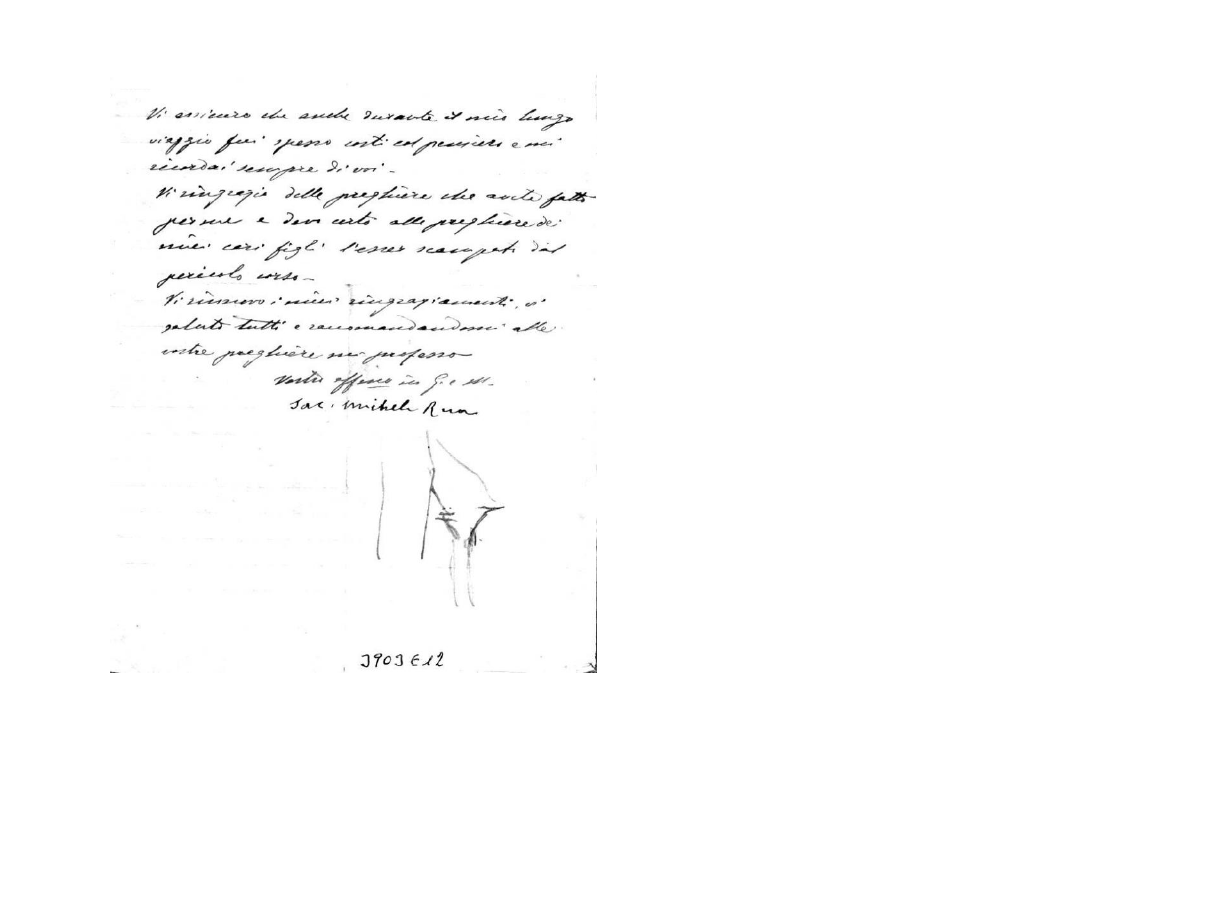 Vi assicuro che anche durante il mio lungo
viaggio fui spesso costì col pensiero e mi
ricordai sempre di voi -
Vi ringrazio delle preghiere che avete fatto
per me e devo certo alle preghiere dei
miei cari figli l'esser scampati dal
pericolo corso -
Vi rinnovo i miei ringraziamenti, vi
saluto tutti e raccomandandomi alle
vostre preghiere mi professo
Vostro affmo in G. e M.
Sac. Michele Rua
3903 E 12